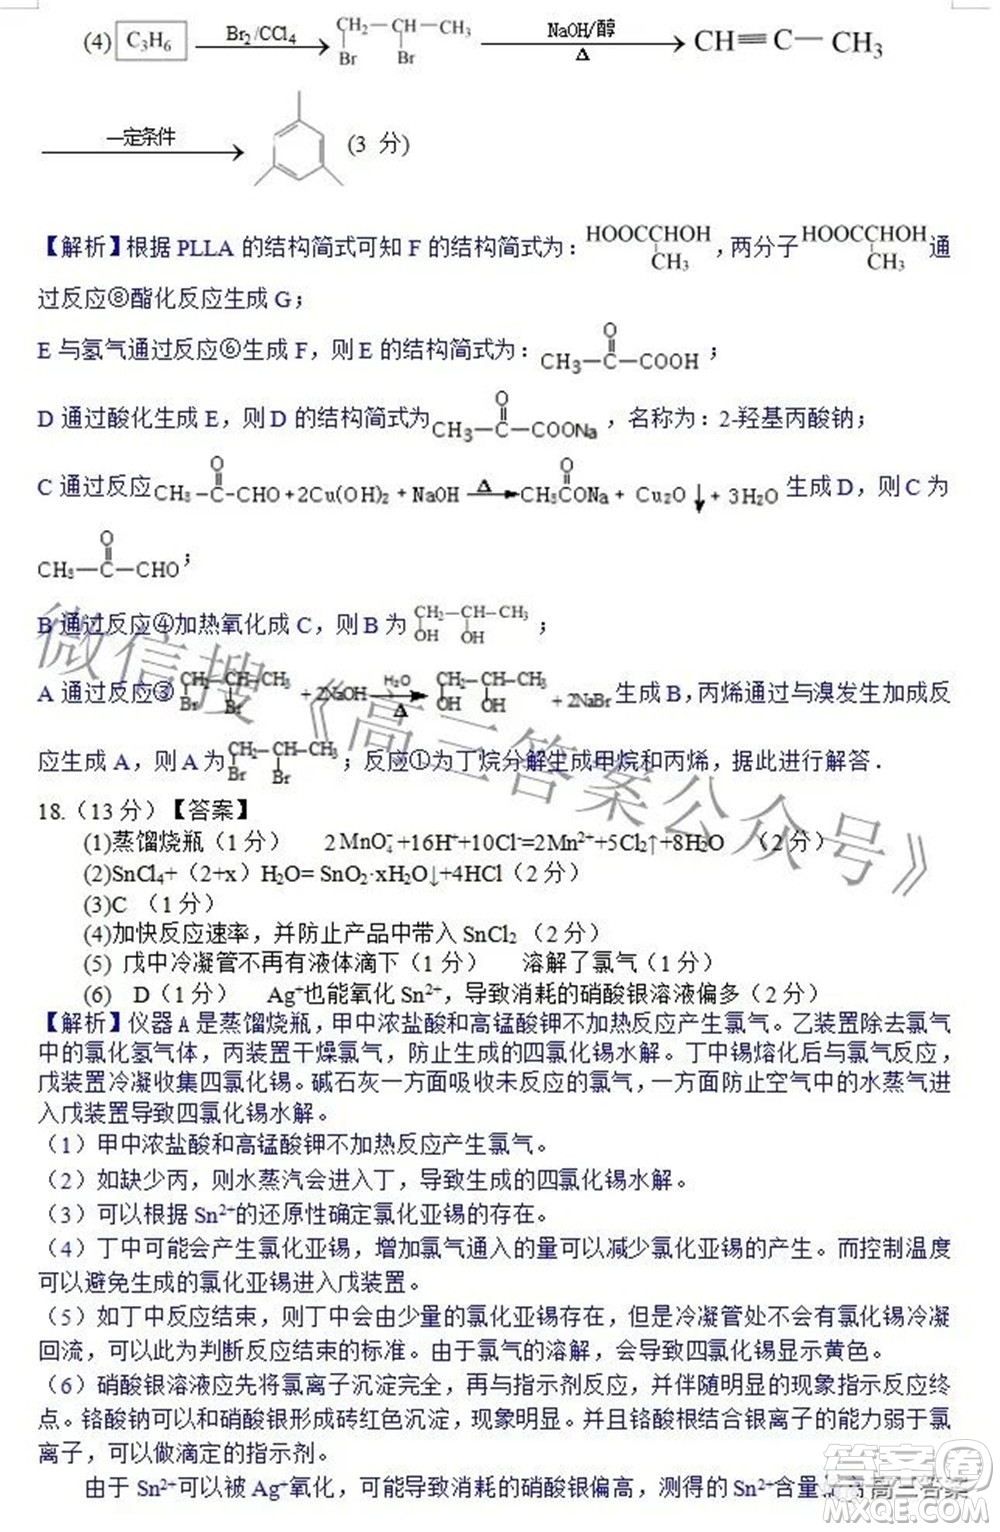 (4) C₃H₆ Br₂/CCl₄ CH₂－CH－CH₃ NaOH/醇 CH≡C－CH₃
Br Br △
一定条件 (3 分)
【解析】根据 PLLA 的结构简式可知 F 的结构简式为：HOOCCHOH，两分子HOOCCHOH通
CH₃ CH₃
过反应⑧酯化反应生成 G；
E 与氢气通过反应⑥生成 F，则 E 的结构简式为：CH₃－C－COOH；
O
D 通过酸化生成 E，则 D 的结构简式为CH₃－C－COONa，名称为：2-羟基丙酸钠；
O
C 通过反应CH₃－C－CHO+2Cu(OH)₂+NaOH △ CH₃CONa+Cu₂O↓+3H₂O 生成 D，则 C 为
O O
CH₃－C－CHO；
O
B 通过反应④加热氧化成 C，则 B 为CH₂－CH－CH₃；
OH OH
A 通过反应③CH₂－CH－CH₃+2NaOH H₂O △ CH₂－CH－CH₃+2NaBr 生成 B，丙烯通过与溴发生加成反
Br Br OH OH
应生成 A，则 A 为CH₂－CH－CH₃；反应①为丁烷分解生成甲烷和丙烯，据此进行解答．
Br Br
18.（13 分）【答案】
(1)蒸馏烧瓶（1 分） 2MnO₄⁻+16H⁺+10Cl⁻=2Mn²⁺+5Cl₂↑+8H₂O （2 分）
(2)SnCl₄+（2+x）H₂O= SnO₂·xH₂O↓+4HCl（2 分）
(3)C （1 分）
(4)加快反应速率，并防止产品中带入 SnCl₂（2 分）
(5) 戊中冷凝管不再有液体滴下（1 分） 溶解了氯气（1 分）
(6) D（1 分） Ag⁺也能氧化 Sn²⁺，导致消耗的硝酸银溶液偏多（2 分）
【解析】仪器 A 是蒸馏烧瓶，甲中浓盐酸和高锰酸钾不加热反应产生氯气。乙装置除去氯气
中的氯化氢气体，丙装置干燥氯气，防止生成的四氯化锡水解。丁中锡熔化后与氯气反应，
戊装置冷凝收集四氯化锡。碱石灰一方面吸收未反应的氯气，一方面防止空气中的水蒸气进
入戊装置导致四氯化锡水解。
（1）甲中浓盐酸和高锰酸钾不加热反应产生氯气。
（2）如缺少丙，则水蒸汽会进入丁，导致生成的四氯化锡水解。
（3）可以根据 Sn²⁺的还原性确定氯化亚锡的存在。
（4）丁中可能会产生氯化亚锡，增加氯气通入的量可以减少氯化亚锡的产生。而控制温度
可以避免生成的氯化亚锡进入戊装置。
（5）如丁中反应结束，则丁中会由少量的氯化亚锡存在，但是冷凝管处不会有氯化锡冷凝
回流，可以此为判断反应结束的标准。由于氯气的溶解，会导致四氯化锡显示黄色。
（6）硝酸银溶液应先将氯离子沉淀完全，再与指示剂反应，并伴随明显的现象指示反应终
点。铬酸钠可以和硝酸银形成砖红色沉淀，现象明显。并且铬酸根结合银离子的能力弱于氯
离子，可以做滴定的指示剂。
由于 Sn²⁺可以被 Ag⁺氧化，可能导致消耗的硝酸银偏高，测得的 Sn²⁺含量
微信搜《高三答案公众号》
高三答案
答案圈
MXQE.COM